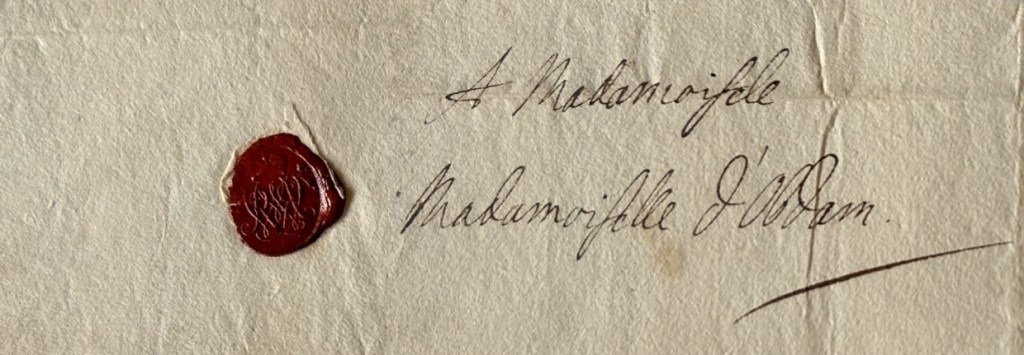 A Madamoiſele
Madamoiſelle d'Obdam.